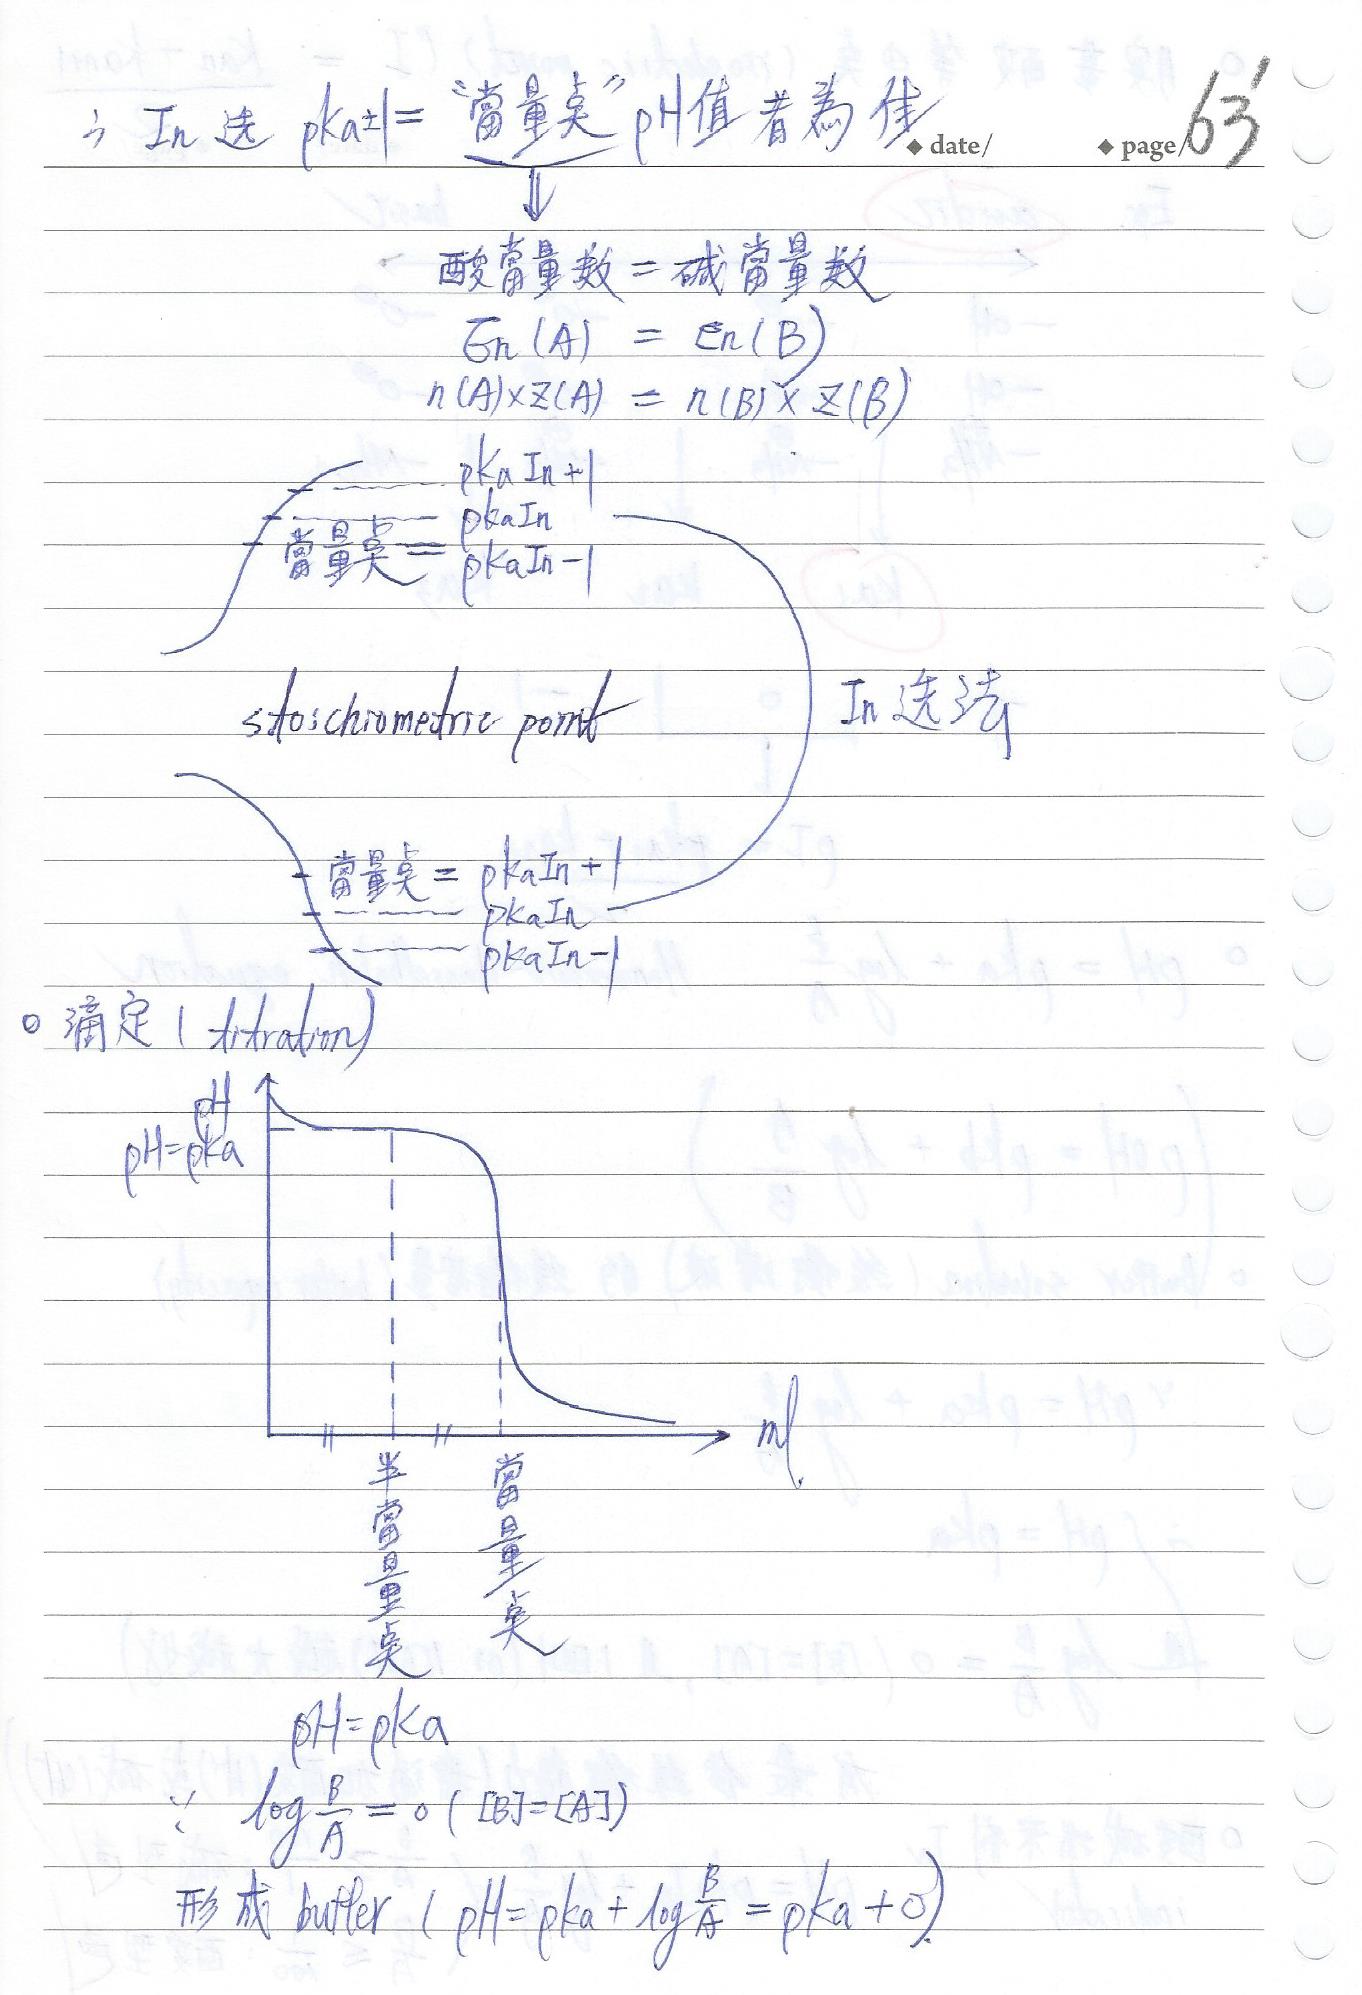 ∴ In 选 pka±1 = "當量点" pH值者為佳
◆ date/ ◆ page/ 63'
⇓
酸當量数 = 碱當量数
En(A) = En(B)
n(A)×Z(A) = n(B)×Z(B)
pKaIn+1
pkaIn
當量点 = pkaIn-1
stoichiometric point
In 选法
當量点 = pkaIn+1
pkaIn
pkaIn-1
○ 滴定 (titration)
pH
pH=pka
ml
半當量点
當量点
pH=pKa
∵ log B/A = 0 ([B]=[A])
形成 buffer (pH=pka+log B/A = pKa+0)